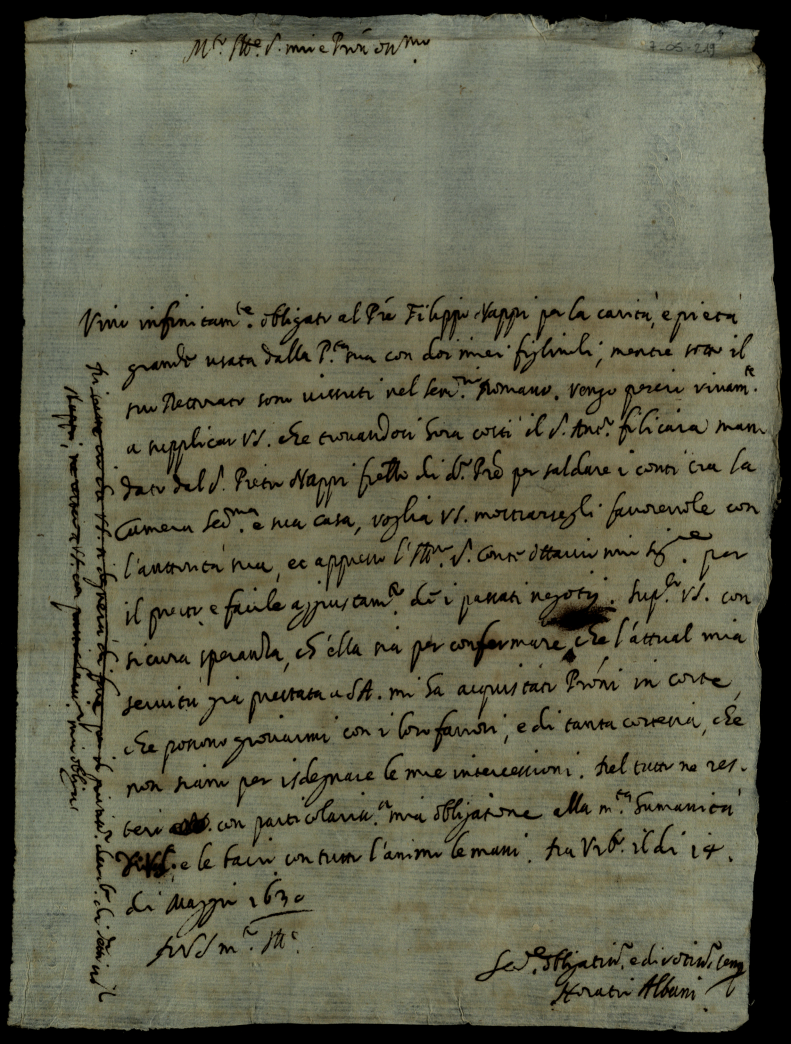 7-05-219
M.to Ill.e S. mio e Prōn oss.mo
Vivo infinitam.te obligato al Prē Filippo Nappi per la carità, e pietà
grande usata dalla P.tà sua con doi miei figlioli, mentre sotto il
suo Rettorato sono vissuti nel Sem.rio Romano. Vengo perciò vivam.te
a supplicar VS. che trovandosi hora costì il S. Ant.o Filicaia man
dato dal S. Pietro Nappi frēllo di d.o Prē per saldare i conti tra la
Camera Ser.ma e sua casa, voglia VS. mostrarsegli favorevole con
l'auttorità sua, et appresso l'Ill.mo S. Conte Ottavio mio Sig.re per
il presto e facile aggiustam.to de i passati negotij. Sup.co VS. con
sicura speranza, ch'ella sia per confermare, che l'attual mia
servitù già prestata a S.A. mi ha acquistati Prōni in corte,
che possono giovarmi con i loro favori, e di tanta cortesia, che
non siano per isdegnare le mie intercessioni. Del tutto ne res-
terò con particolariss.ma mia obligatione alla m.ta humanità
di VS. e le bacio con tutto l'animo le mani. Da Urb.o il dì 14.
di Maggio 1630
Di VS m.to Ill.e
Ser.re obligatiss.o e divotiss.o
Horatio Albani
Nappi, mi oblige